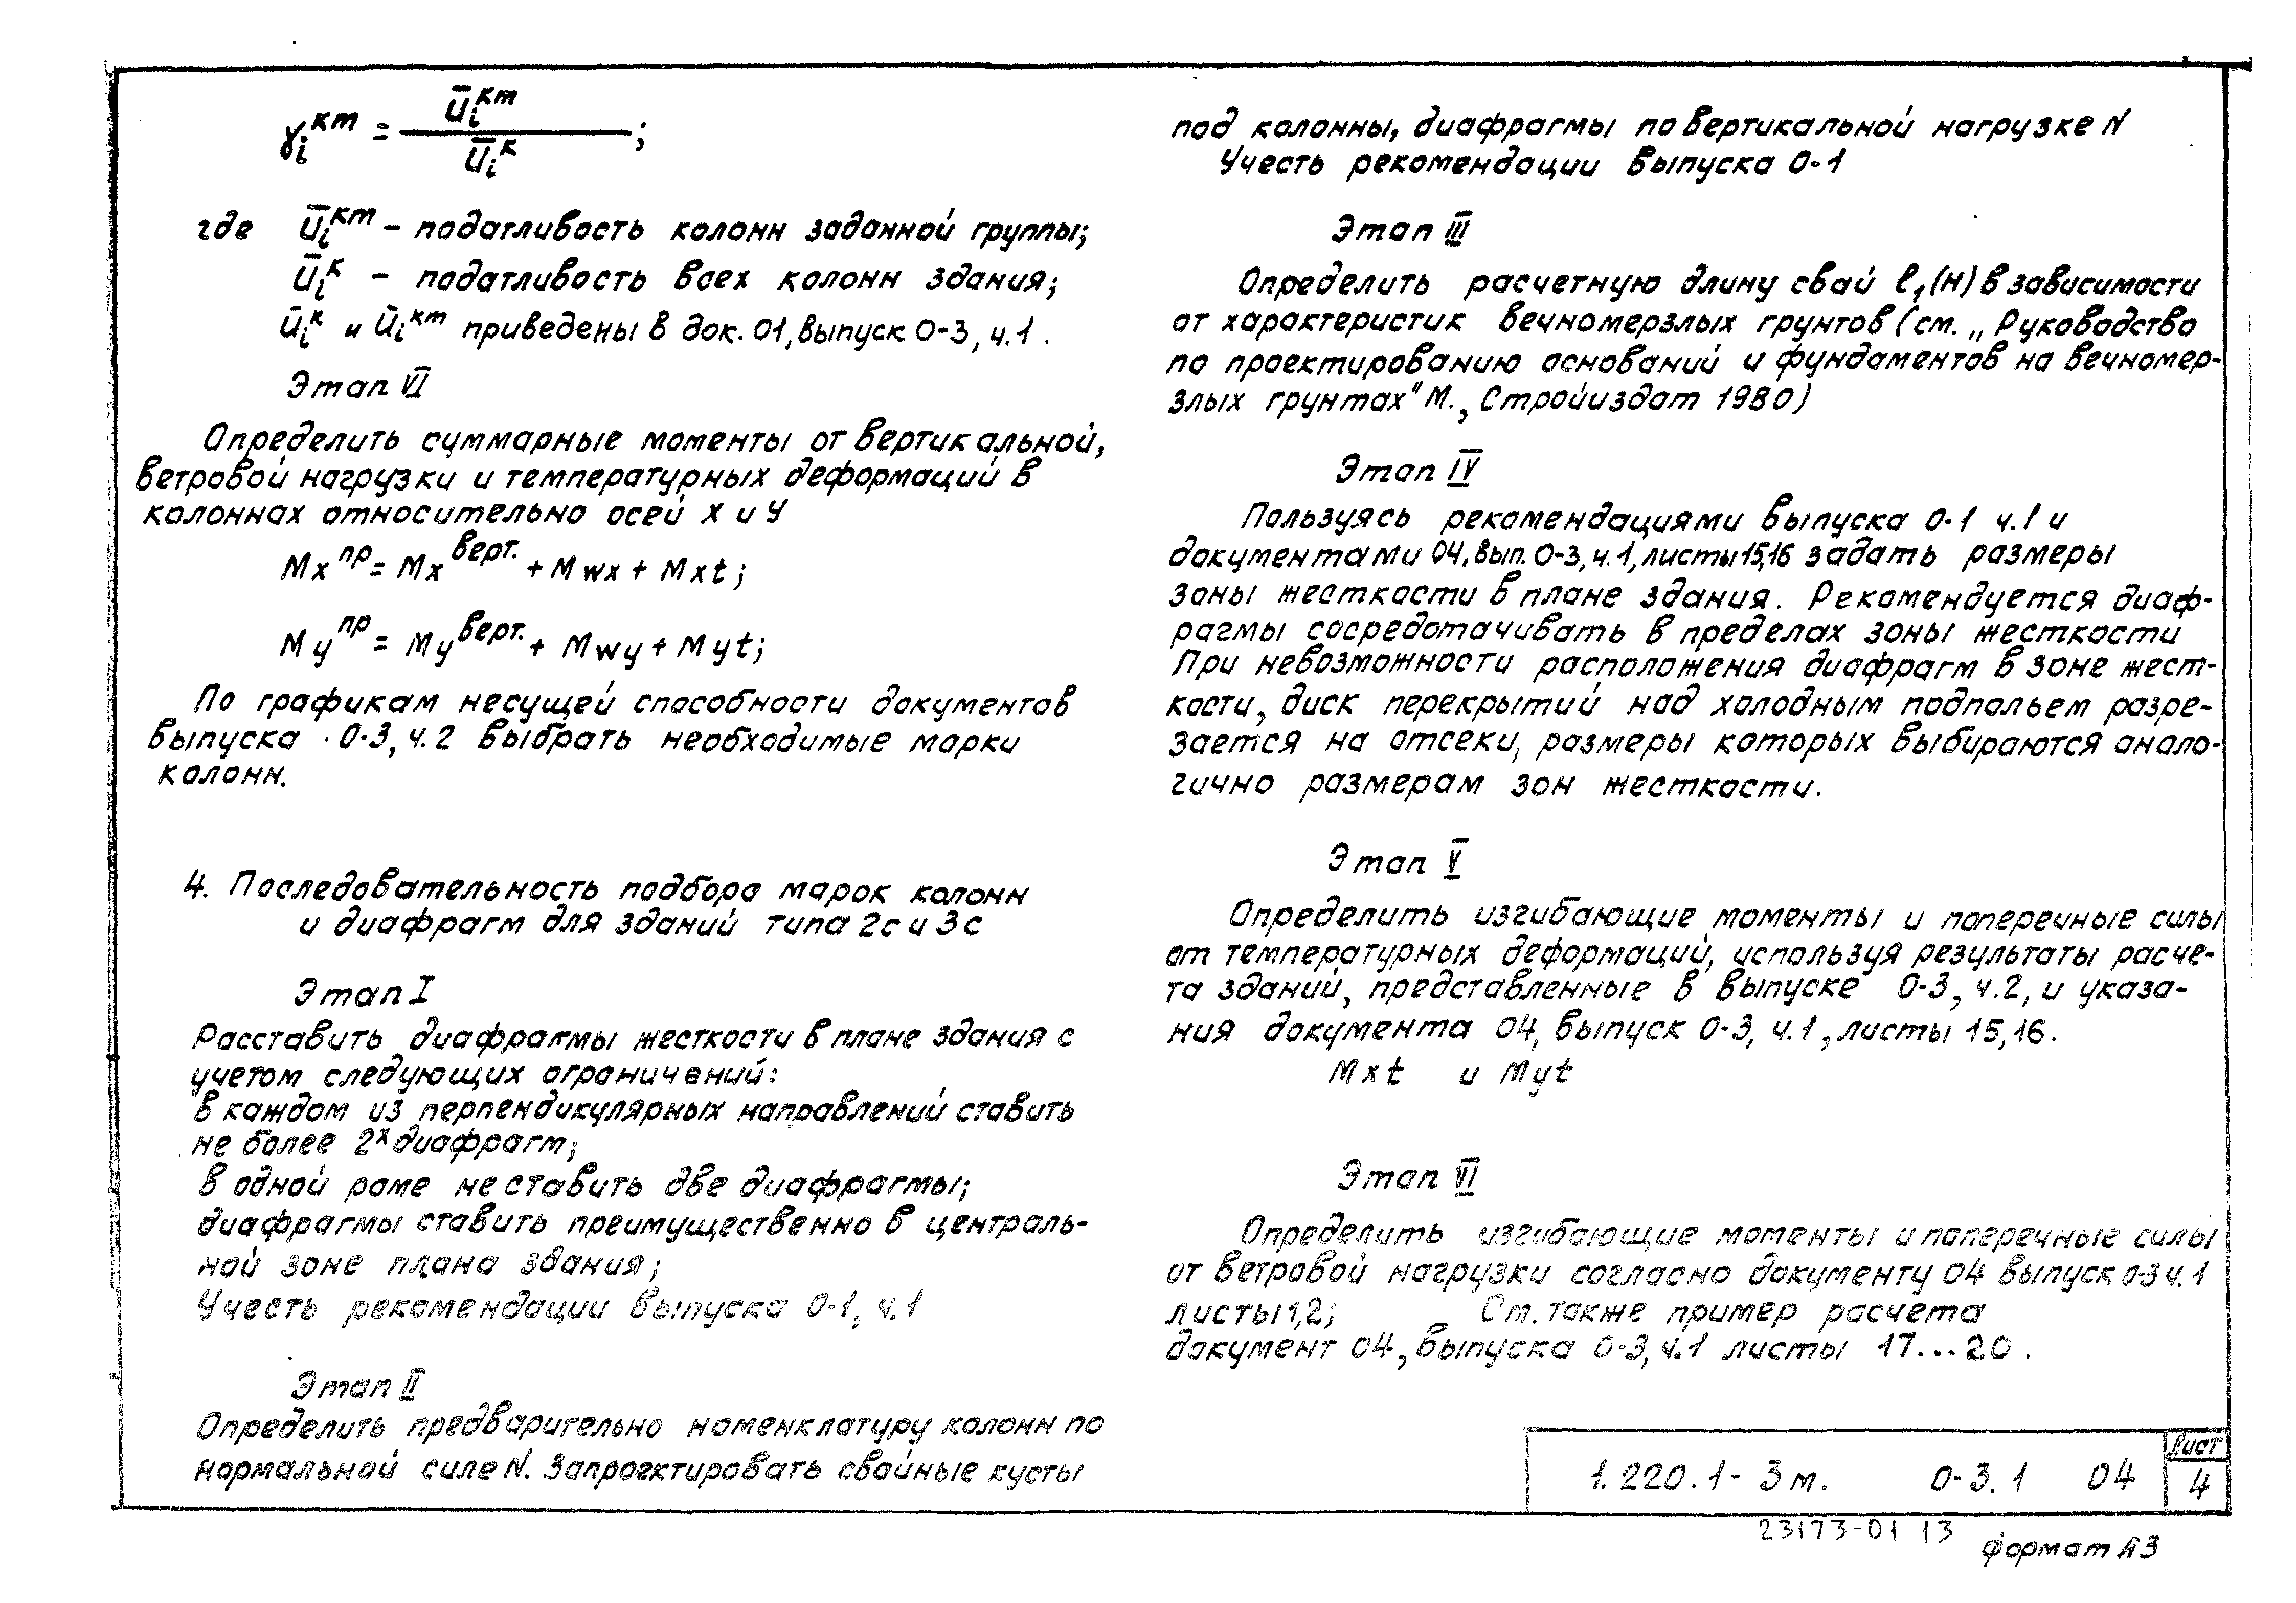 γᵢᵏᵐ = ūᵢᵏᵐ / ūᵢᵏ ;
где ūᵢᵏᵐ – податливость колонн заданной группы;
ūᵢᵏ – податливость всех колонн здания;
ūᵢᵏ и ūᵢᵏᵐ приведены в док. 01, выпуск 0-3, ч.1.
Этап VI
Определить суммарные моменты от вертикальной,
ветровой нагрузки и температурных деформаций в
колоннах относительно осей X и У
Mx пр = Mx верт. + Mwx + Mxt;
My пр = My верт. + Mwy + Myt;
По графикам несущей способности документов
выпуска 0-3, ч.2 выбрать необходимые марки
колонн.
4. Последовательность подбора марок колонн
и диафрагм для зданий типа 2с и 3с
Этап I
Расставить диафрагмы жесткости в плане здания с
учетом следующих ограничений:
в каждом из перпендикулярных направлений ставить
не более 2х диафрагм;
в одной раме не ставить две диафрагмы;
диафрагмы ставить преимущественно в централь-
ной зоне плана здания;
Учесть рекомендации выпуска 0-1, ч.1
Этап II
Определить предварительно номенклатуру колонн по
нормальной силе N. Запроектировать свайные кусты
под колонны, диафрагмы по вертикальной нагрузке N
Учесть рекомендации выпуска 0-1
Этап III
Определить расчетную длину свай ℓ₁(Н) в зависимости
от характеристик вечномерзлых грунтов (см. „Руководство
по проектированию оснований и фундаментов на вечномер-
злых грунтах" М., Стройиздат 1980)
Этап IV
Пользуясь рекомендациями выпуска 0-1 ч.1 и
документами 04, вып. 0-3, ч.1, листы 15,16 задать размеры
зоны жесткости в плане здания. Рекомендуется диаф-
рагмы сосредотачивать в пределах зоны жесткости
При невозможности расположения диафрагм в зоне жест-
кости, диск перекрытий над холодным подпольем разре-
зается на отсеки, размеры которых выбираются анало-
гично размерам зон жесткости.
Этап V
Определить изгибающие моменты и поперечные силы
от температурных деформаций, используя результаты расче-
та зданий, представленные в выпуске 0-3, ч.2, и указа-
ния документа 04, выпуск 0-3, ч.1, листы 15,16.
Mxt и Myt
Этап VI
Определить изгибающие моменты и поперечные силы
от ветровой нагрузки согласно документу 04 выпуск 0-3 ч.1
листы 1,2; Ст. также пример расчета
документ 04, выпуска 0-3, ч.1 листы 17...20.
1.220.1-3м. 0-3.1 04
Лист
4
23173-01 13
формат А3